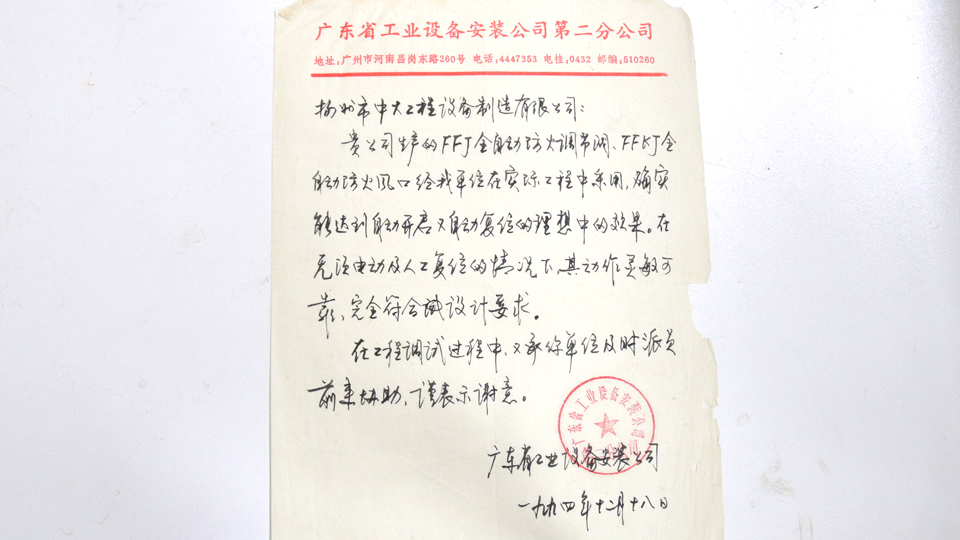 广东省工业设备安装公司第二分公司
地址:广州市河南昌岗东路260号 电话:4447353 电挂:0432 邮编:510260
扬州市中大工程设备制造有限公司:
贵公司生产的FFJ全自动防火调节阀、FFKJ全
自动防火风口经我单位在实际工程中采用,确实
能达到自动开启又自动复位的理想中的效果。在
无须电动及人工复位的情况下,其动作灵敏可
靠,完全符合设计要求。
在工程调试过程中,又承你单位及时派员
前来协助,谨表示谢意。
广东省工业设备安装公司
广东省工业设备安装公司
一九九四年十二月十八日